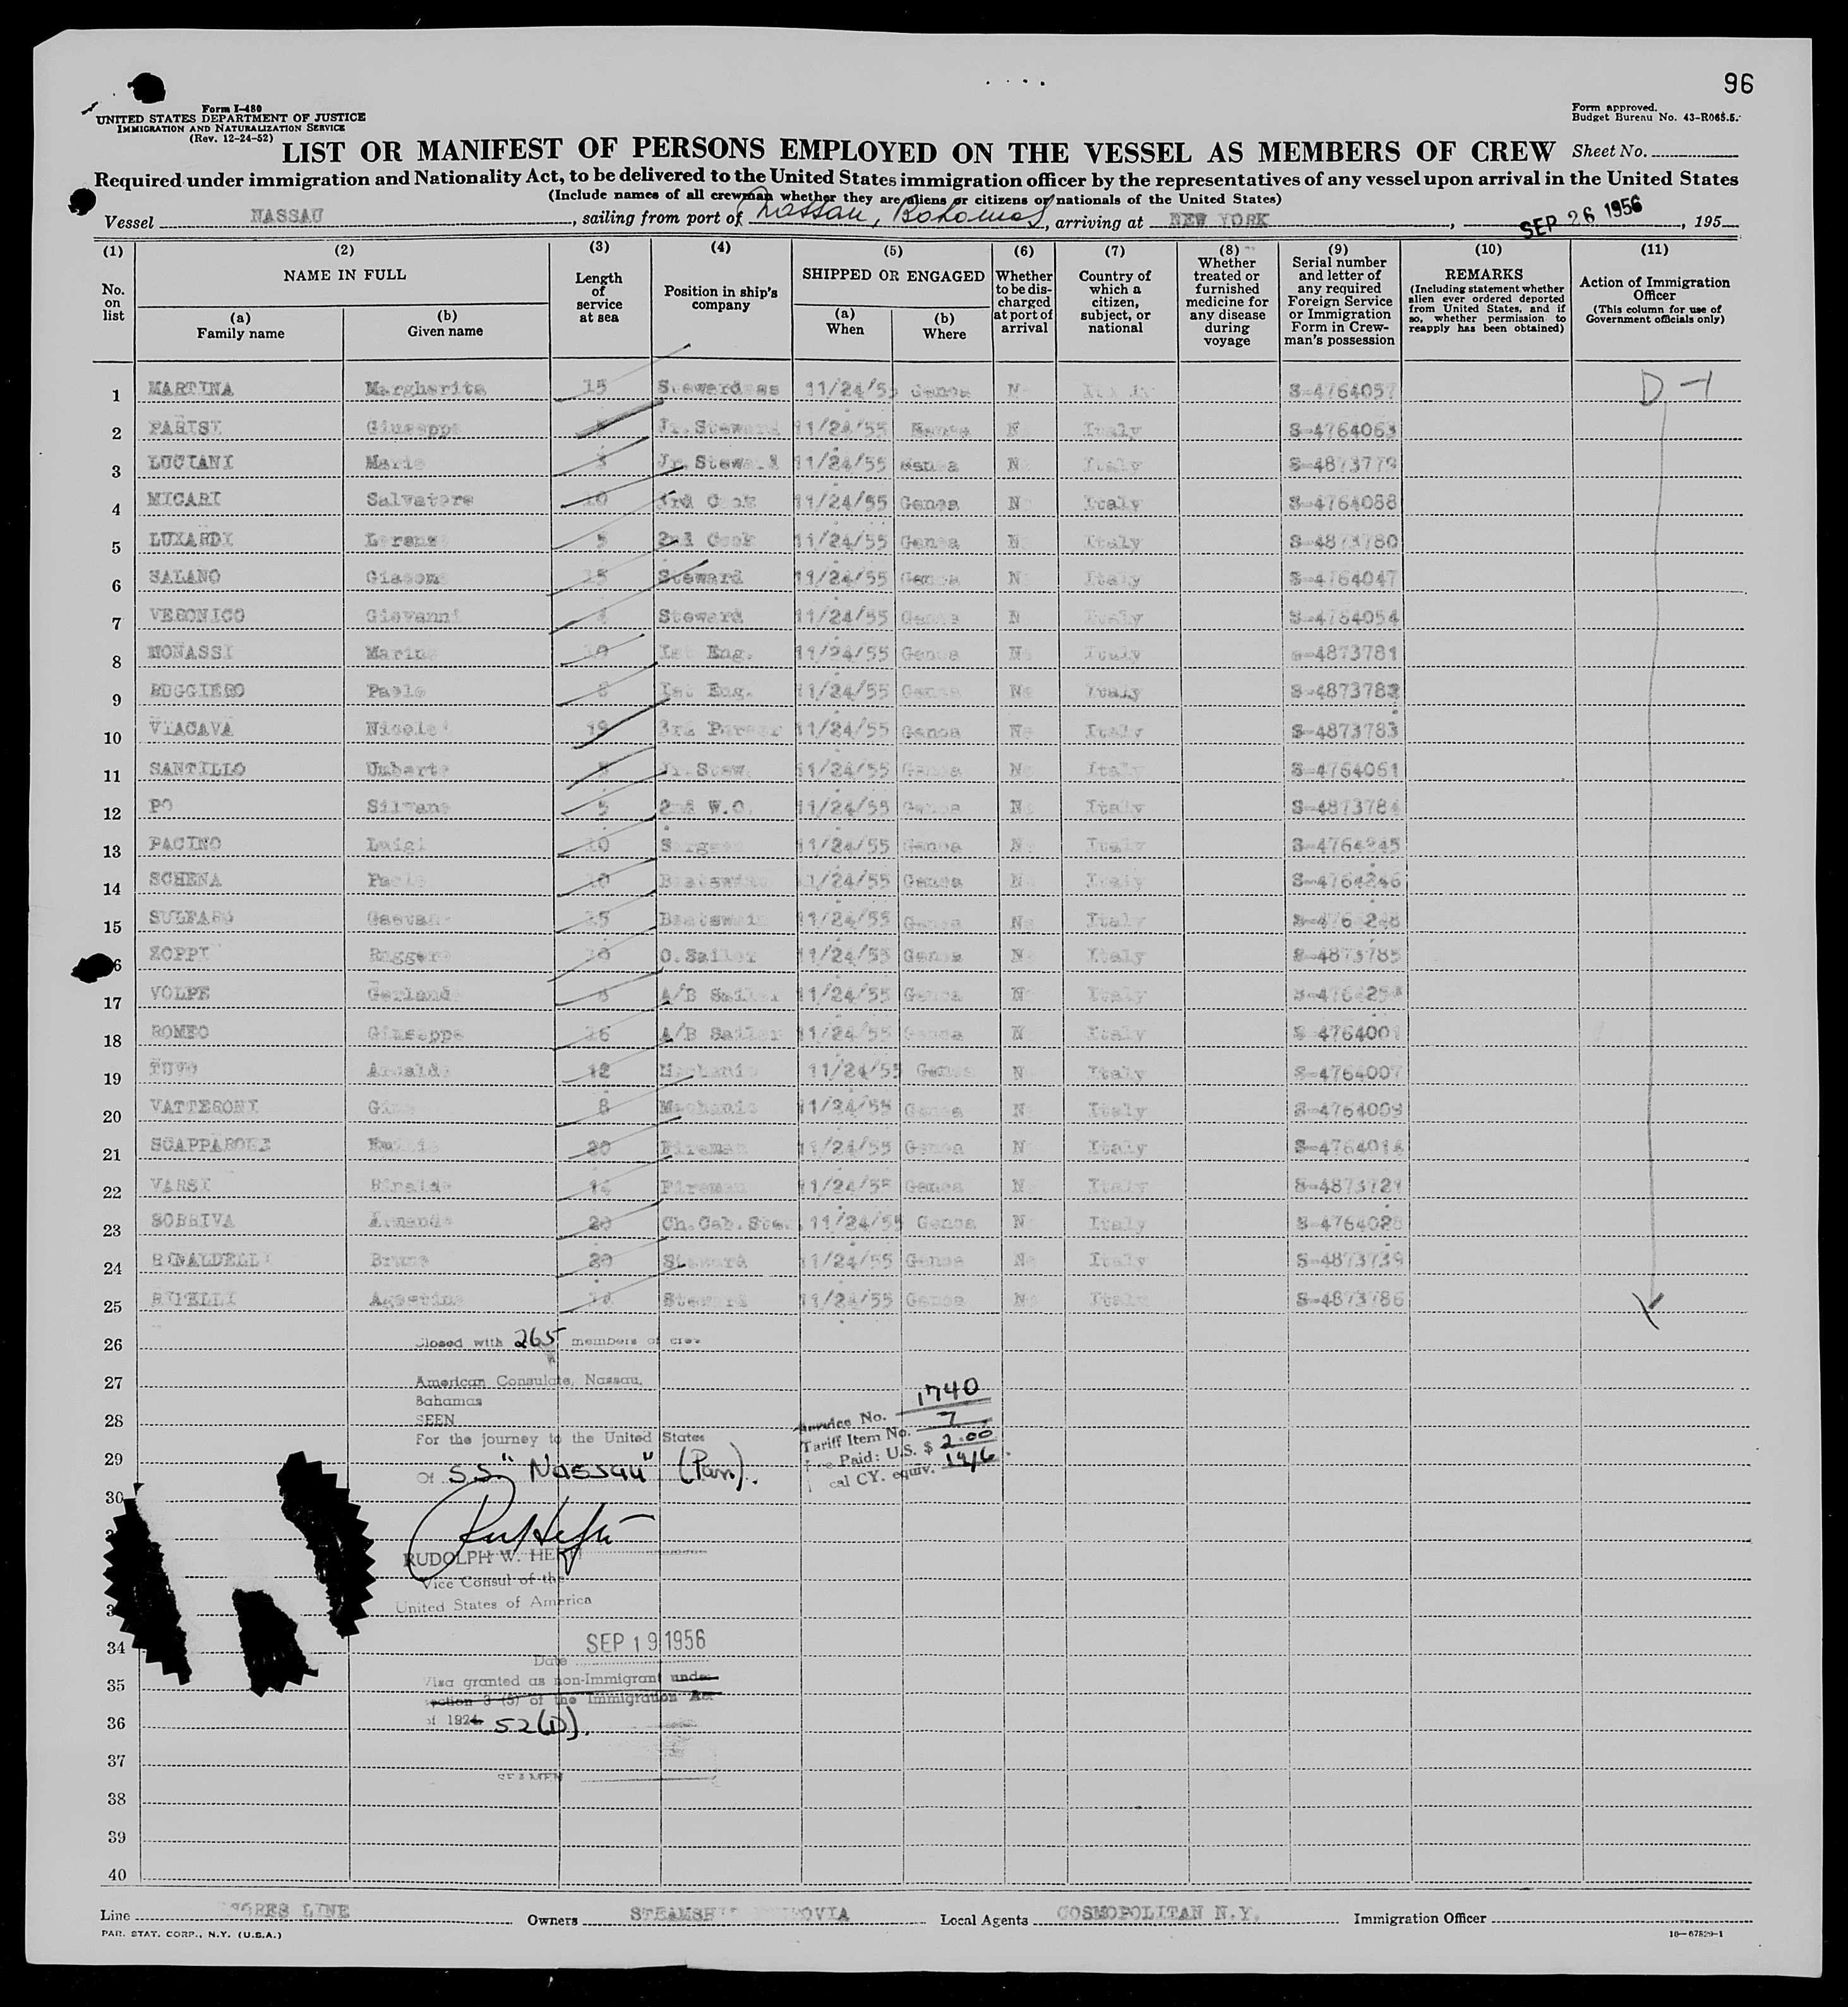 96
Form I-480
UNITED STATES DEPARTMENT OF JUSTICE
IMMIGRATION AND NATURALIZATION SERVICE
(Rev. 12-24-52)
Form approved.
Budget Bureau No. 43-R065.5.
LIST OR MANIFEST OF PERSONS EMPLOYED ON THE VESSEL AS MEMBERS OF CREW Sheet No.
Required under immigration and Nationality Act, to be delivered to the United States immigration officer by the representatives of any vessel upon arrival in the United States
(Include names of all crewman whether they are aliens or citizens or nationals of the United States)
Vessel NASSAU, sailing from port of Nassau, Bahamas, arriving at NEW YORK, SEP 26 1956, 195
(1) No. on list
(2) NAME IN FULL
(a) Family name
(b) Given name
(3) Length of service at sea
(4) Position in ship's company
(5) SHIPPED OR ENGAGED
(a) When
(b) Where
(6) Whether to be discharged at port of arrival
(7) Country of which a citizen, subject, or national
(8) Whether treated or furnished medicine for any disease during voyage
(9) Serial number and letter of any required Foreign Service or Immigration Form in Crewman's possession
(10) REMARKS (Including statement whether alien ever ordered deported from United States, and if so, whether permission to reapply has been obtained)
(11) Action of Immigration Officer (This column for use of Government officials only)
1 MARTINA Margherita 15 Stewardess 11/24/55 Genoa N Italy S-4764057 D-1
2 PARISI Giuseppe Jr. Steward 11/24/55 Genoa N Italy S-4764063
3 LUCIANI Mario 3 Jr. Steward 11/24/55 Genoa N Italy S-4873779
4 MICARI Salvatore 10 3rd Cook 11/24/55 Genoa N Italy S-4764088
5 LUXARDI Lorenz 5 2nd Cook 11/24/55 Genoa N Italy S-4873780
6 SALANO Giacomo 15 Steward 11/24/55 Genoa N Italy S-4764047
7 VERONICO Giovanni 4 Steward 11/24/55 Genoa N Italy S-4764054
8 MONASSI Marin 10 1st Eng. 11/24/55 Genoa N Italy S-4873781
9 RUGGIERO Paolo 8 1st Eng. 11/24/55 Genoa No Italy S-4873782
10 VIACAVA Nicolo 19 3rd Purser 11/24/55 Genoa No Italy S-4873783
11 SANTILLO Umberto Jr. Stew. 11/24/55 Genoa No Italy S-4764061
12 PO Silvano 5 2nd W.O. 11/24/55 Genoa No Italy S-4873784
13 PACINO Luigi 10 11/24/55 Genoa No Italy S-4764245
14 SCHENA Paolo 10 Boatswain 11/24/55 Genoa N Italy S-4764246
15 SULFARO Gaetan 25 Boatswain 11/24/55 Genoa No Italy
16 ZOPPI Ruggero O. Sailor 11/24/55 Genoa N Italy S-4873785
17 VOLPE Gerland A/B Sailor 11/24/55 Genoa N Italy
18 ROMEO Giuseppe 16 A/B Sailor 11/24/55 Genoa N Italy S-4764001
19 TUVO Arnaldo 12 Mechanic 11/24/55 Genoa N Italy S-4764007
20 VATTERONI Gino 8 Mechanic 11/24/55 Genoa N Italy S-4764009
21 SCAPPARONE Emilio 20 Fireman 11/24/55 Genoa N Italy S-4764014
22 VARSI Rinaldo 14 Fireman 11/24/55 Genoa N Italy S-4873721
23 SOBRIVA Armando 20 Ch. Cab. Stew. 11/24/55 Genoa N Italy S-4764028
24 RINALDELLI Bruno 20 Steward 11/24/55 Genoa No Italy S-4873739
25 RUPELLI Agostino 14 Steward 11/24/55 Genoa No Italy S-4873786
26
27
28
29
30
34
35
36
37
38
39
40
Closed with 265 members of crew
American Consulate, Nassau,
Bahamas
SEEN
For the journey to the United States
Of S.S. "Nassau" (Pan).
RUDOLPH W. HEFTI
Vice Consul of the
United States of America
SEP 19 1956
Date
Visa granted as non-Immigrant under
section 3 (5) of the Immigration Act
of 1924 52(D).
SEAMEN
Service No. 1740
Tariff Item No. 7
Fee Paid: U.S. $ 2.00
Local CY. equiv. 14/6.
Line ORES LINE Owners STEAMSH OVIA Local Agents COSMOPOLITAN N.Y. Immigration Officer
PAR. STAT. CORP., N.Y. (U.S.A.)
16-67829-1